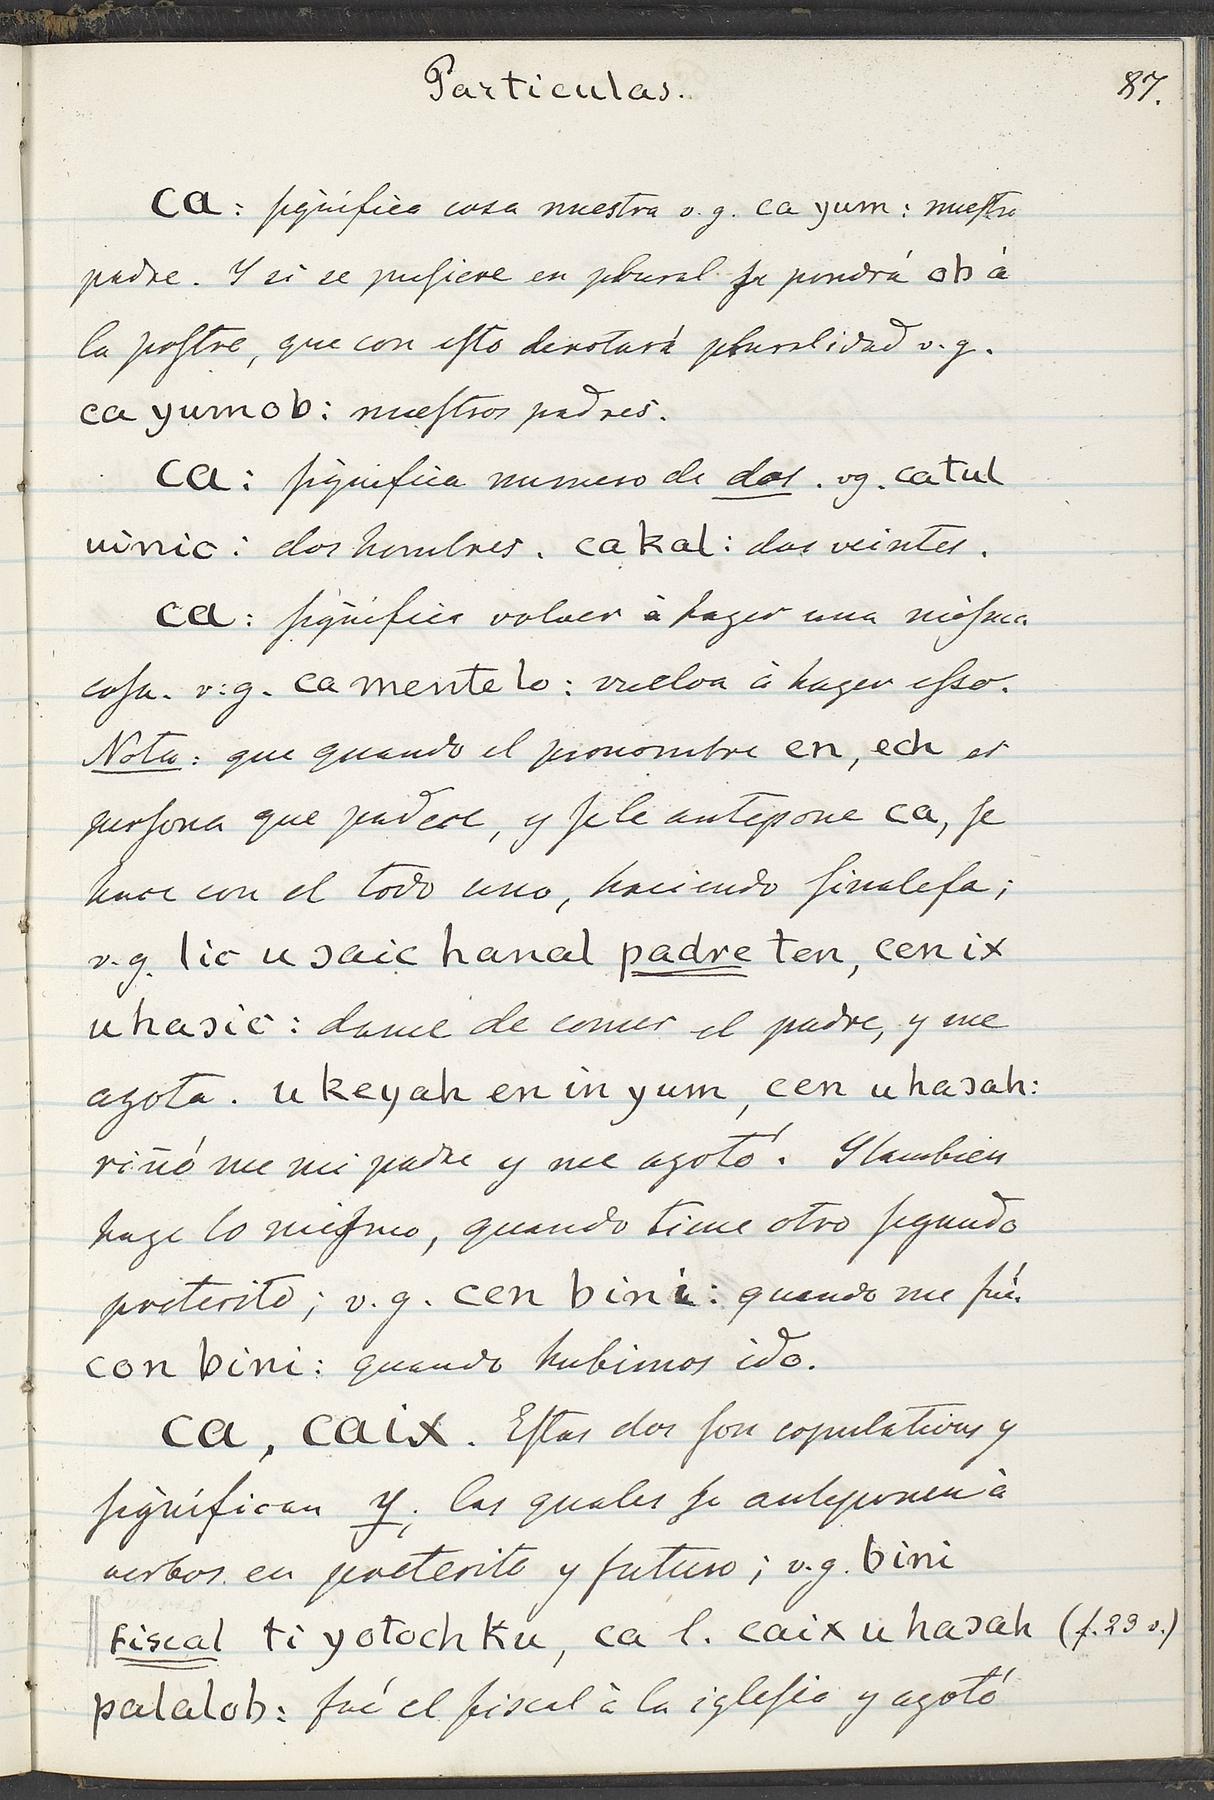 Particulas.
87.
ca: significa cosa nuestra v.g. ca yum: nuestro
padre. Y si se pusiere en plural se pondrá ob à
la postre, que con esto denotará pluralidad v.g.
ca yumob: nuestros padres.
ca: significa numero de dos. vg. catul
uinic: dos hombres. cakal: dos veintes.
ca: significa volver à hazer una misma
cosa. v:g. ca mente lo: vuelva à hazer esso.
Nota: que quando el pronombre en, ech es
persona que padece, y se le antepone ca, se
hace con el todo uno, haciendo sinalefa;
v.g. lic u ɔaic hanal padre ten, cen ix
uhaɔic: dame de comer el padre, y me
azota. u keyah en in yum, cen uhaɔah:
riñó me mi padre y me azotó. Y tambien
haze lo mismo, quando tiene otro segundo
preterito; v.g. cen bini: quando me fuí.
con bini: quando hubimos ido.
ca, caix. Estas dos son copulativas y
significan y; las quales se anteponen à
verbos en preterito y futuro; v.g. bini
fiscal ti yotoch Ku, ca l. caix u haɔah (f. 23 v.)
palalob: fué el fiscal à la iglesia y azotó